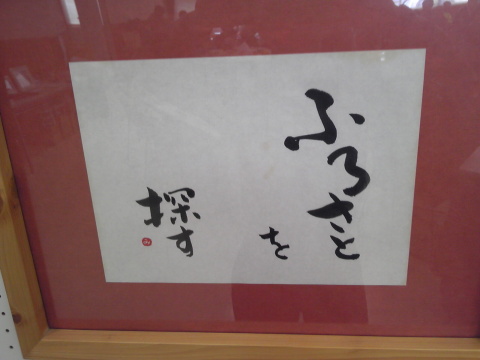 ふるさと
を
探す